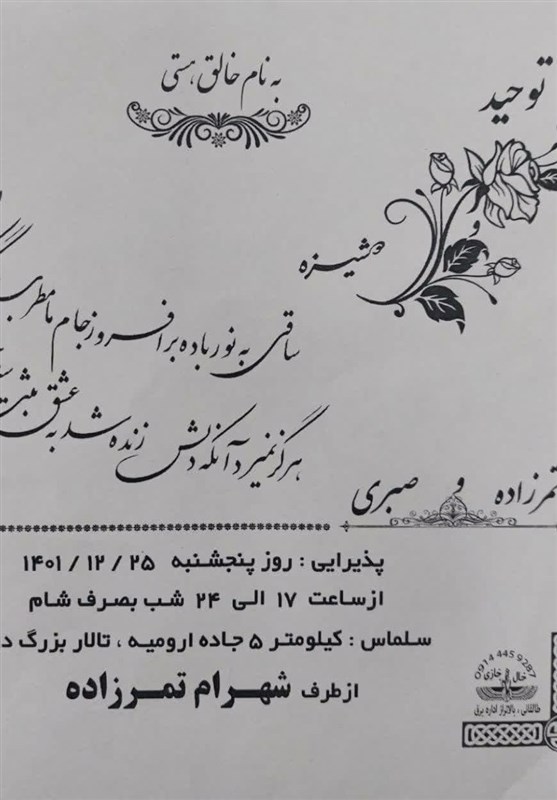 به نام خالق هستی
توحید
و
دوشیزه
ساقی به نور باده برافروز جام ما مطرب
هرگز نمیرد آنکه دلش زنده شد به عشق ثبت
تمرزاده و صبری
پذیرایی : روز پنجشنبه ۲۵ / ۱۲ / ۱۴۰۱
از ساعت ۱۷ الی ۲۴ شب بصرف شام
سلماس : کیلومتر ۵ جاده ارومیه ، تالار بزرگ
از طرف شهرام تمرزاده
0914 445 9287
طالقانی ، بالاتر از اداره برق